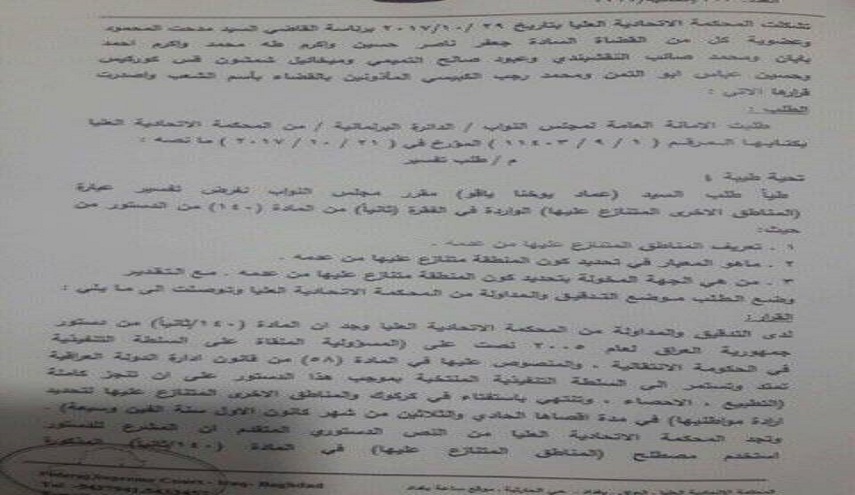 تشكلت المحكمة الاتحادية العليا بتاريخ ٢٩/ ١٠/ ٢٠١٧ برئاسة القاضي السيد مدحت المحمود
وعضوية كل من القضاة السادة جعفر ناصر حسين واكرم طه محمد واكرم احمد
بابان ومحمد صائب النقشبندي وعبود صالح التميمي وميخائيل شمشون قس كوركيس
وحسين عباس ابو التمن ومحمد رجب الكبيسي المأذونين بالقضاء بأسم الشعب واصدرت
قرارها الاتي :
الطلب :
طلبت الامانة العامة لمجلس النواب / الدائرة البرلمانية / من المحكمة الاتحادية العليا
بكتابها المرقم ( ١ / ٩ / ١١٤٠٣ ) المؤرخ في ( ٢١ / ١٠ / ٢٠١٧ ) ما نصه :
م / طلب تفسير
تحية طيبة ؛
طياً طلب السيد (عماد يوخنا ياقو) مقرر مجلس النواب لغرض تفسير عبارة
(المناطق الاخرى المتنازع عليها) الواردة في الفقرة (ثانياً) من المادة (١٤٠) من الدستور من
حيث:
١ . تعريف المناطق المتنازع عليها من عدمه .
٢ . ماهو المعيار في تحديد كون المنطقة متنازع عليها من عدمه .
٣ . من هي الجهة المخولة بتحديد كون المنطقة متنازع عليها من عدمه . مع التقدير
وضع الطلب موضع التدقيق والمداولة من المحكمة الاتحادية العليا وتوصلت الى ما يلي :
القرار :
لدى التدقيق والمداولة من المحكمة الاتحادية العليا وجد ان المادة (١٤٠/ثانياً) من دستور
جمهورية العراق لعام ٢٠٠٥ نصت على (المسؤولية الملقاة على السلطة التنفيذية
في الحكومة الانتقالية . والمنصوص عليها في المادة (٥٨) من قانون ادارة الدولة العراقية
تمتد وتستمر الى السلطة التنفيذية المنتخبة بموجب هذا الدستور على ان تنجز كاملة
(التطبيع ، الاحصاء ، وتنتهي باستفتاء في كركوك والمناطق الاخرى المتنازع عليها لتحديد
ارادة مواطنيها) في مدة اقصاها الحادي والثلاثين من شهر كانون الاول سنة الفين وسبعة) .
وتجد المحكمة الاتحادية العليا من النص الدستوري المتقدم ان المشرع للدستور
استخدم مصطلح (المناطق المتنازع عليها) في المادة (١٤٠/ثانياً) المذكورة
Federal Supreme Court - Iraq- Baghdad